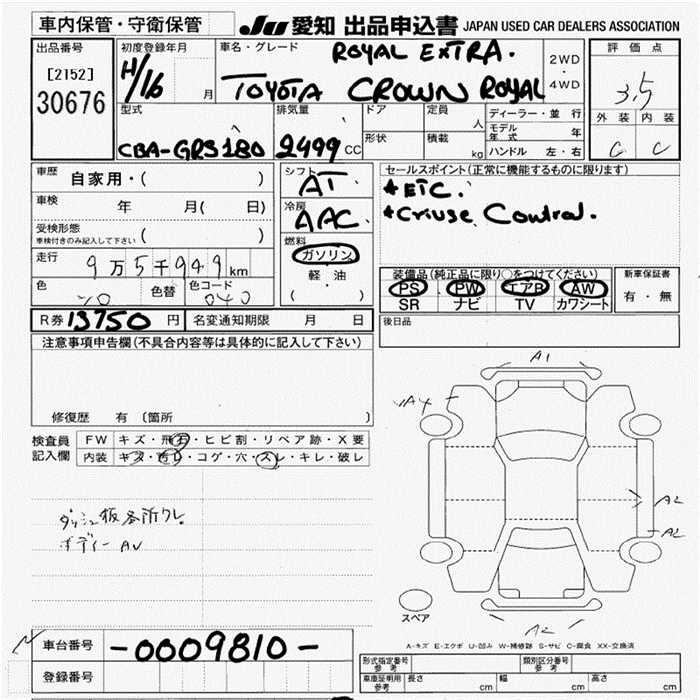 車内保管・守衛保管
JU 愛知 出品申込書 JAPAN USED CAR DEALERS ASSOCIATION
出品番号
[2152]
30676
初度登録年月
H/16 月
車名・グレード
ROYAL EXTRA.
TOYOTA CROWN ROYAL
2WD
・
4WD
評価点
3.5
外装 内装
C C
型式
CBA-GRS180
排気量
2499 CC
ドア
形状
定員
人
積載
kg
ディーラー・並行
モデル年式 年
ハンドル 左・右
車歴 自家用・( )
車検 年 月( 日)
受検形態
車検付きのみ記入して下さい ( )
走行 9万5千949km
色 色替 色コード
040
シフト
AT
冷房
AAC
燃料
ガソリン
軽・油
( )
セールスポイント(正常に機能するものに限ります)
★ETC.
★Criuse Control.
装備品(純正品に限り○をつけてください)
PS PW エアB AW
SR ナビ TV カワシート
新車保証書
有・無
R券 13750 円 名変通知期限 月 日
後日品
注意事項申告欄(不具合内容等は具体的に記入して下さい)
修復歴 有 〔箇所
検査員
記入欄
FW キズ・飛石・ヒビ割・リペア跡・X要
内装 キズ・汚れ・コゲ・穴・スレ・キレ・破レ
ボディー
A1
A4
A2
A2
A2
スペア
A-キズ E-エクボ U-凹み W-補修跡 S-サビ C-腐食 XX-交換済
車台番号 -0009810-
登録番号
形式指定番号
参考
類別区分番号
参考
車庫証明用
参考
長さ cm 幅 cm 高さ cm